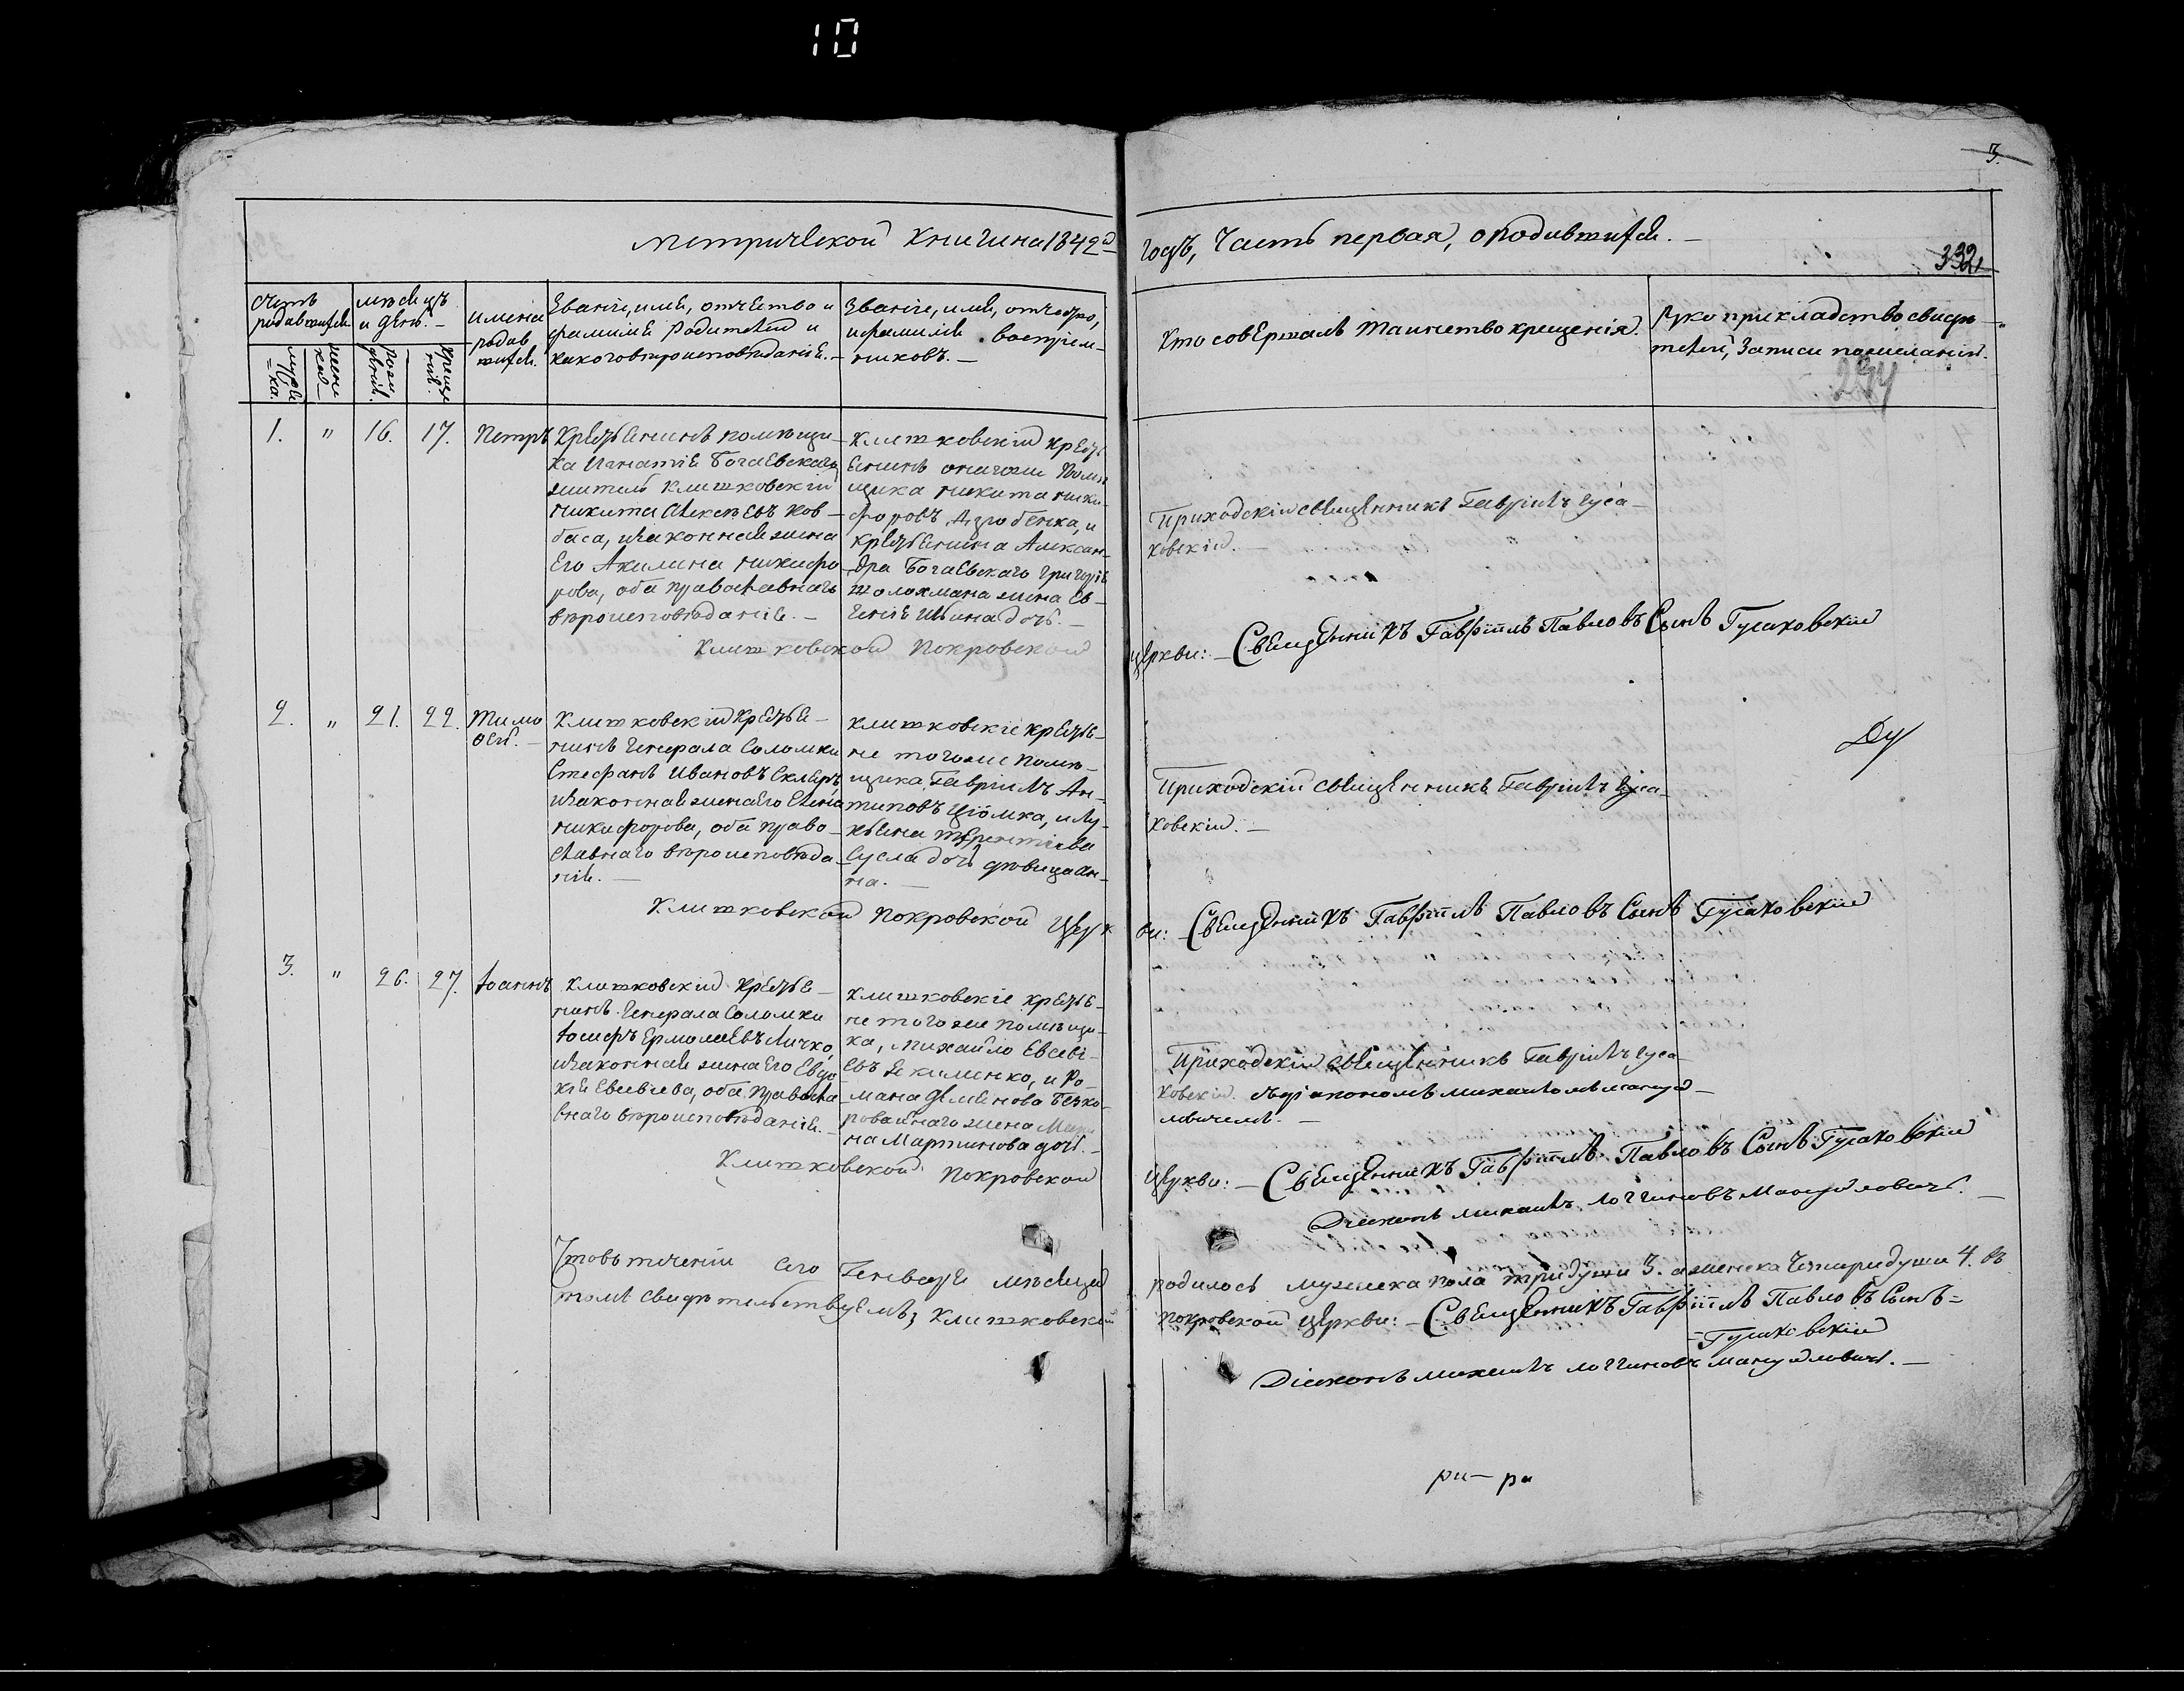 10
3.
Метрической Книги на 1842й
годъ, Часть первая, о Родившихся. —
332
Счетъ родившихся.
мужеска.
женска
Мѣсяцъ и день. —
рождения.
крещения.
Имена родившихся.
Званіе, имя, отчество и
фамилія Родителей и
какого вѣроисповѣданія. —
Званіе, имя, отчество,
и фамилія воспріем-
никовъ. —
Кто совершалъ Таинство крещенія.
Рукоприкладство свидѣ-
телей, Записи по желанію.
294
1. " 16. 17. Петръ
Крестьянинъ помѣщи-
ка Игнатія Богаевскаго,
житель Клишковскій
Никита Алексѣевъ Ков-
баса, и законная жена
Его Акилина Никифо-
рова, оба православнаго
вѣроисповѣданія. —
Клишковскій крест
янинъ онагоже Помѣ
щика Никита Ники-
форовъ Дзюбенка, и
крестьянина Алексан-
дра Богаевскаго Григорія
Шоломана жена Ев-
генія дочь. —
Приходскій священникъ Гавріилъ Гуса-
ковскій. —
Клишковской Покровской
церкви: — Священникъ Гавріилъ Павловъ Сынъ Гусаковскій
2. " 21. 22. Тимо
ѳей. —
Клишковскій Крестья-
нинъ Генерала Соломки
Стефанъ Ивановъ Скляръ
и законная жена Его Елена
Никифорова, оба право-
славнаго вѣроисповѣда-
нія. —
Клишковскіе крестья-
не тогоже помѣ-
щика, Гавріилъ Ан-
типовъ Цюмка, и Лу-
кьяна Терентіева
Сусла дочь дѣвица Ан-
на. —
Приходскій священникъ Гавріилъ Гуса-
ковскій. —
Клишковской Покровской Церк
ви: — Священникъ Гавріилъ Павловъ Сынъ Гусаковскій
3. " 26. 27. Іоаннъ
Клишковскій Крестья-
нинъ Генерала Соломки
Іосифъ Ермолаевъ Личко,
и законная жена Его Евдо
кія Евсевіева, оба Правосла
внаго вѣроисповѣданія. —
Клишковскіе крестья-
не тогоже помѣщи-
ка, Михайло Евсеві-
евъ Якименко, и Ро-
мана Деміянова Безко-
ровайнаго жена Мари
на Мартинова дочь. —
Приходскій священникъ Гавріилъ Гуса-
ковскій. съ діакономъ Михаиломъ Мануй-
ловичемъ. —
Клишковской Покровской
Церкви: — Священникъ Гавріилъ Павловъ Сынъ Гусаковскій
Діаконъ Михаилъ Логгиновъ Мануйловичъ. —
Что въ теченіи сего Генваря мѣсяца
родилось мужеска пола три души 3. а женска Четыри души 4. въ
томъ свидѣтельствуемъ, Клишковской
Покровской церкви: — Священникъ Гавріилъ Павловъ Сынъ =
= Гусаковскій
Діаконъ Михаилъ Логгиновъ Мануйловичъ. —
ри — ра